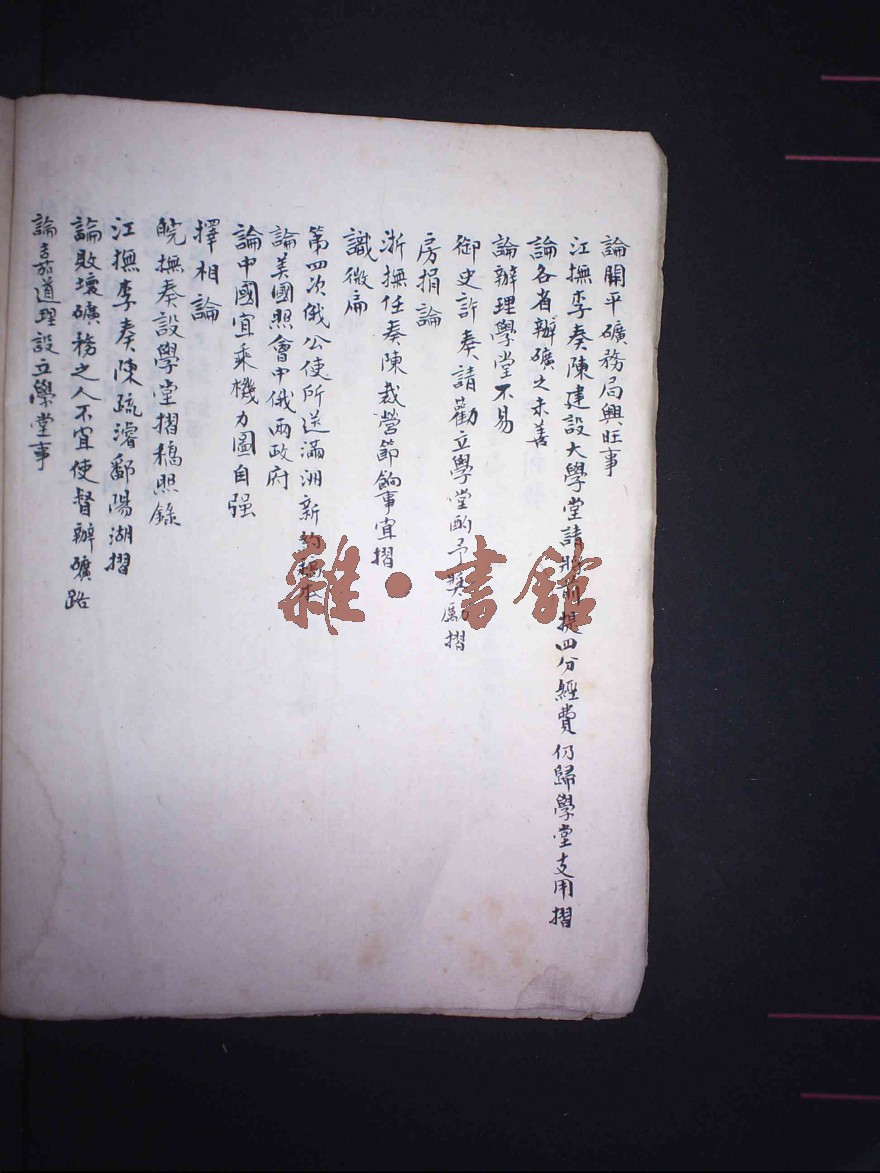 論開平礦務局興旺事
江撫李奏陳建設大學堂請將前提四分經費仍歸學堂支用摺
論各省辦礦之未善
論辦理學堂不易
御史許奏請勸立學堂酌予獎勵摺
房捐論
浙撫任奏陳裁營節餉事宜摺
識微扁
第四次俄公使所送滿洲新約稿本
論美國照會中俄兩政府
論中國宜乘機力圖自强
擇相論
皖撫奏設學堂摺稿照錄
江撫李奏陳疏濬鄱陽湖摺
論敗壞礦務之人不宜使督辦礦路
論嘉道理設立學堂事
雜·書館